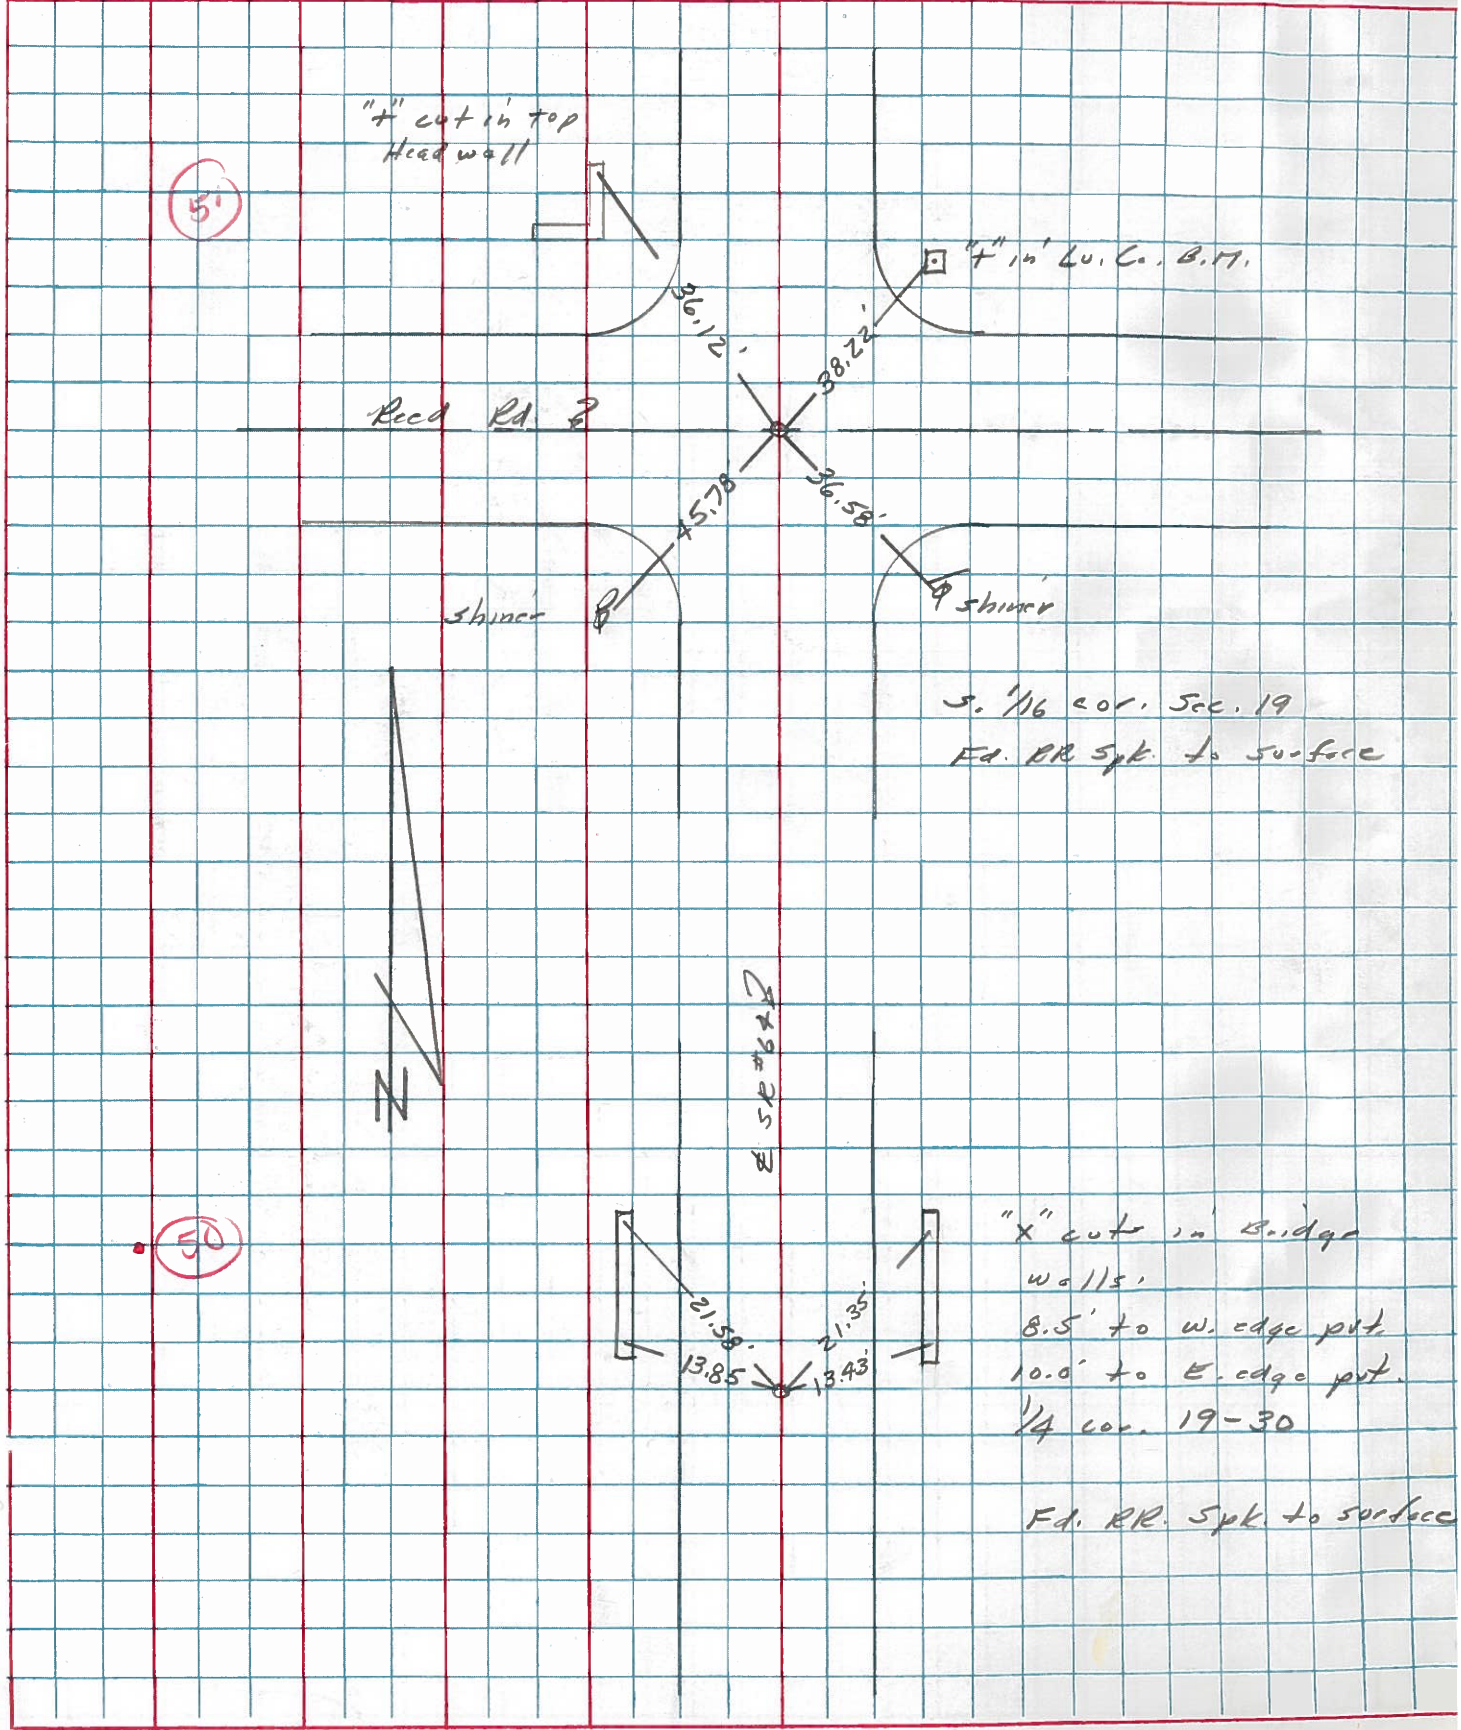 "+" cut in top
Head wall
51
"+" in Lu. Co. B.M.
36.12'
38.22'
Reed Rd. ⅊
45.78'
36.58'
shiner
shiner
S. 1/16 cor. Sec. 19
Fd. RR Spk. to surface
N
SR #64
50
"X" cuts in Bridge
walls.
21.58'
21.35'
8.5' to w. edge pvt.
13.85
13.43'
10.0' to E. edge pvt.
1/4 cor. 19-30
Fd. RR. Spk. to surface